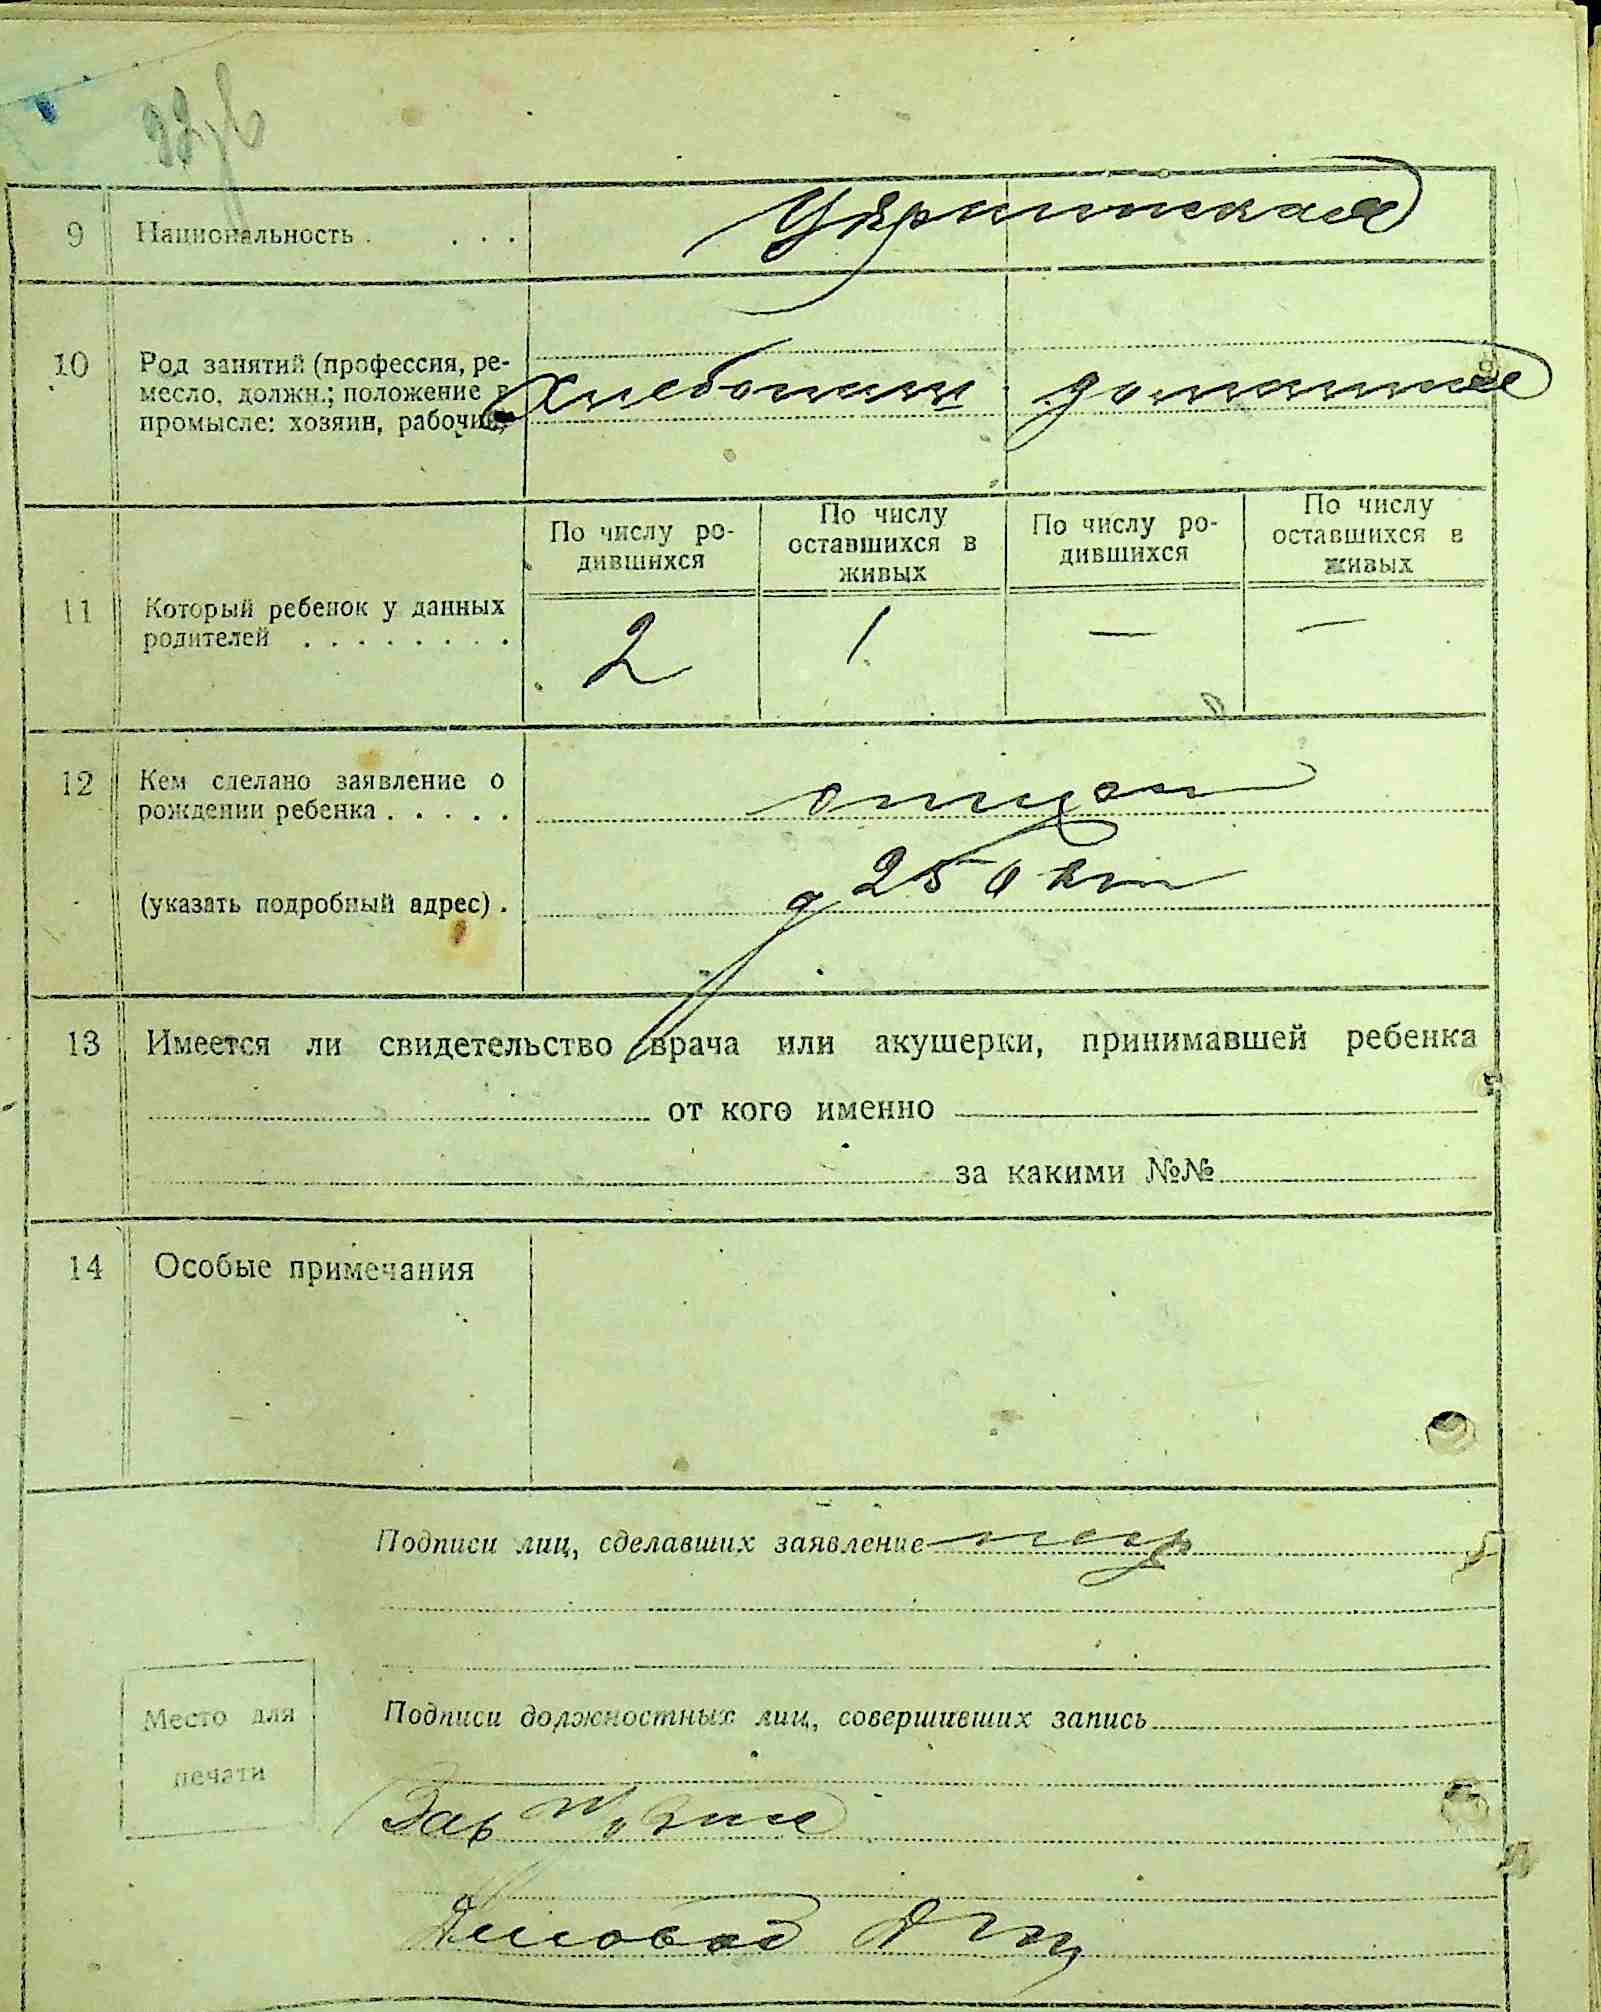 9 Национальность . . . . Украинская
10 Род занятий (профессия, ре-
месло, должн.; положение в
промысле: хозяин, рабочий,
хлебопаш домашние
11 Который ребенок у данных
родителей . . . . . . . .
По числу ро-
дившихся
По числу
оставшихся в
живых
По числу ро-
дившихся
По числу
оставшихся в
живых
2 1 — —
12 Кем сделано заявление о
рождении ребенка . . . . .
отцом
(указать подробный адрес) .
13 Имеется ли свидетельство врача или акушерки, принимавшей ребенка
от кого именно
за какими №№
14 Особые примечания
Подписи лиц, сделавших заявление
Место для
печати
Подписи должностных лиц, совершивших запись
Зав
Деловод